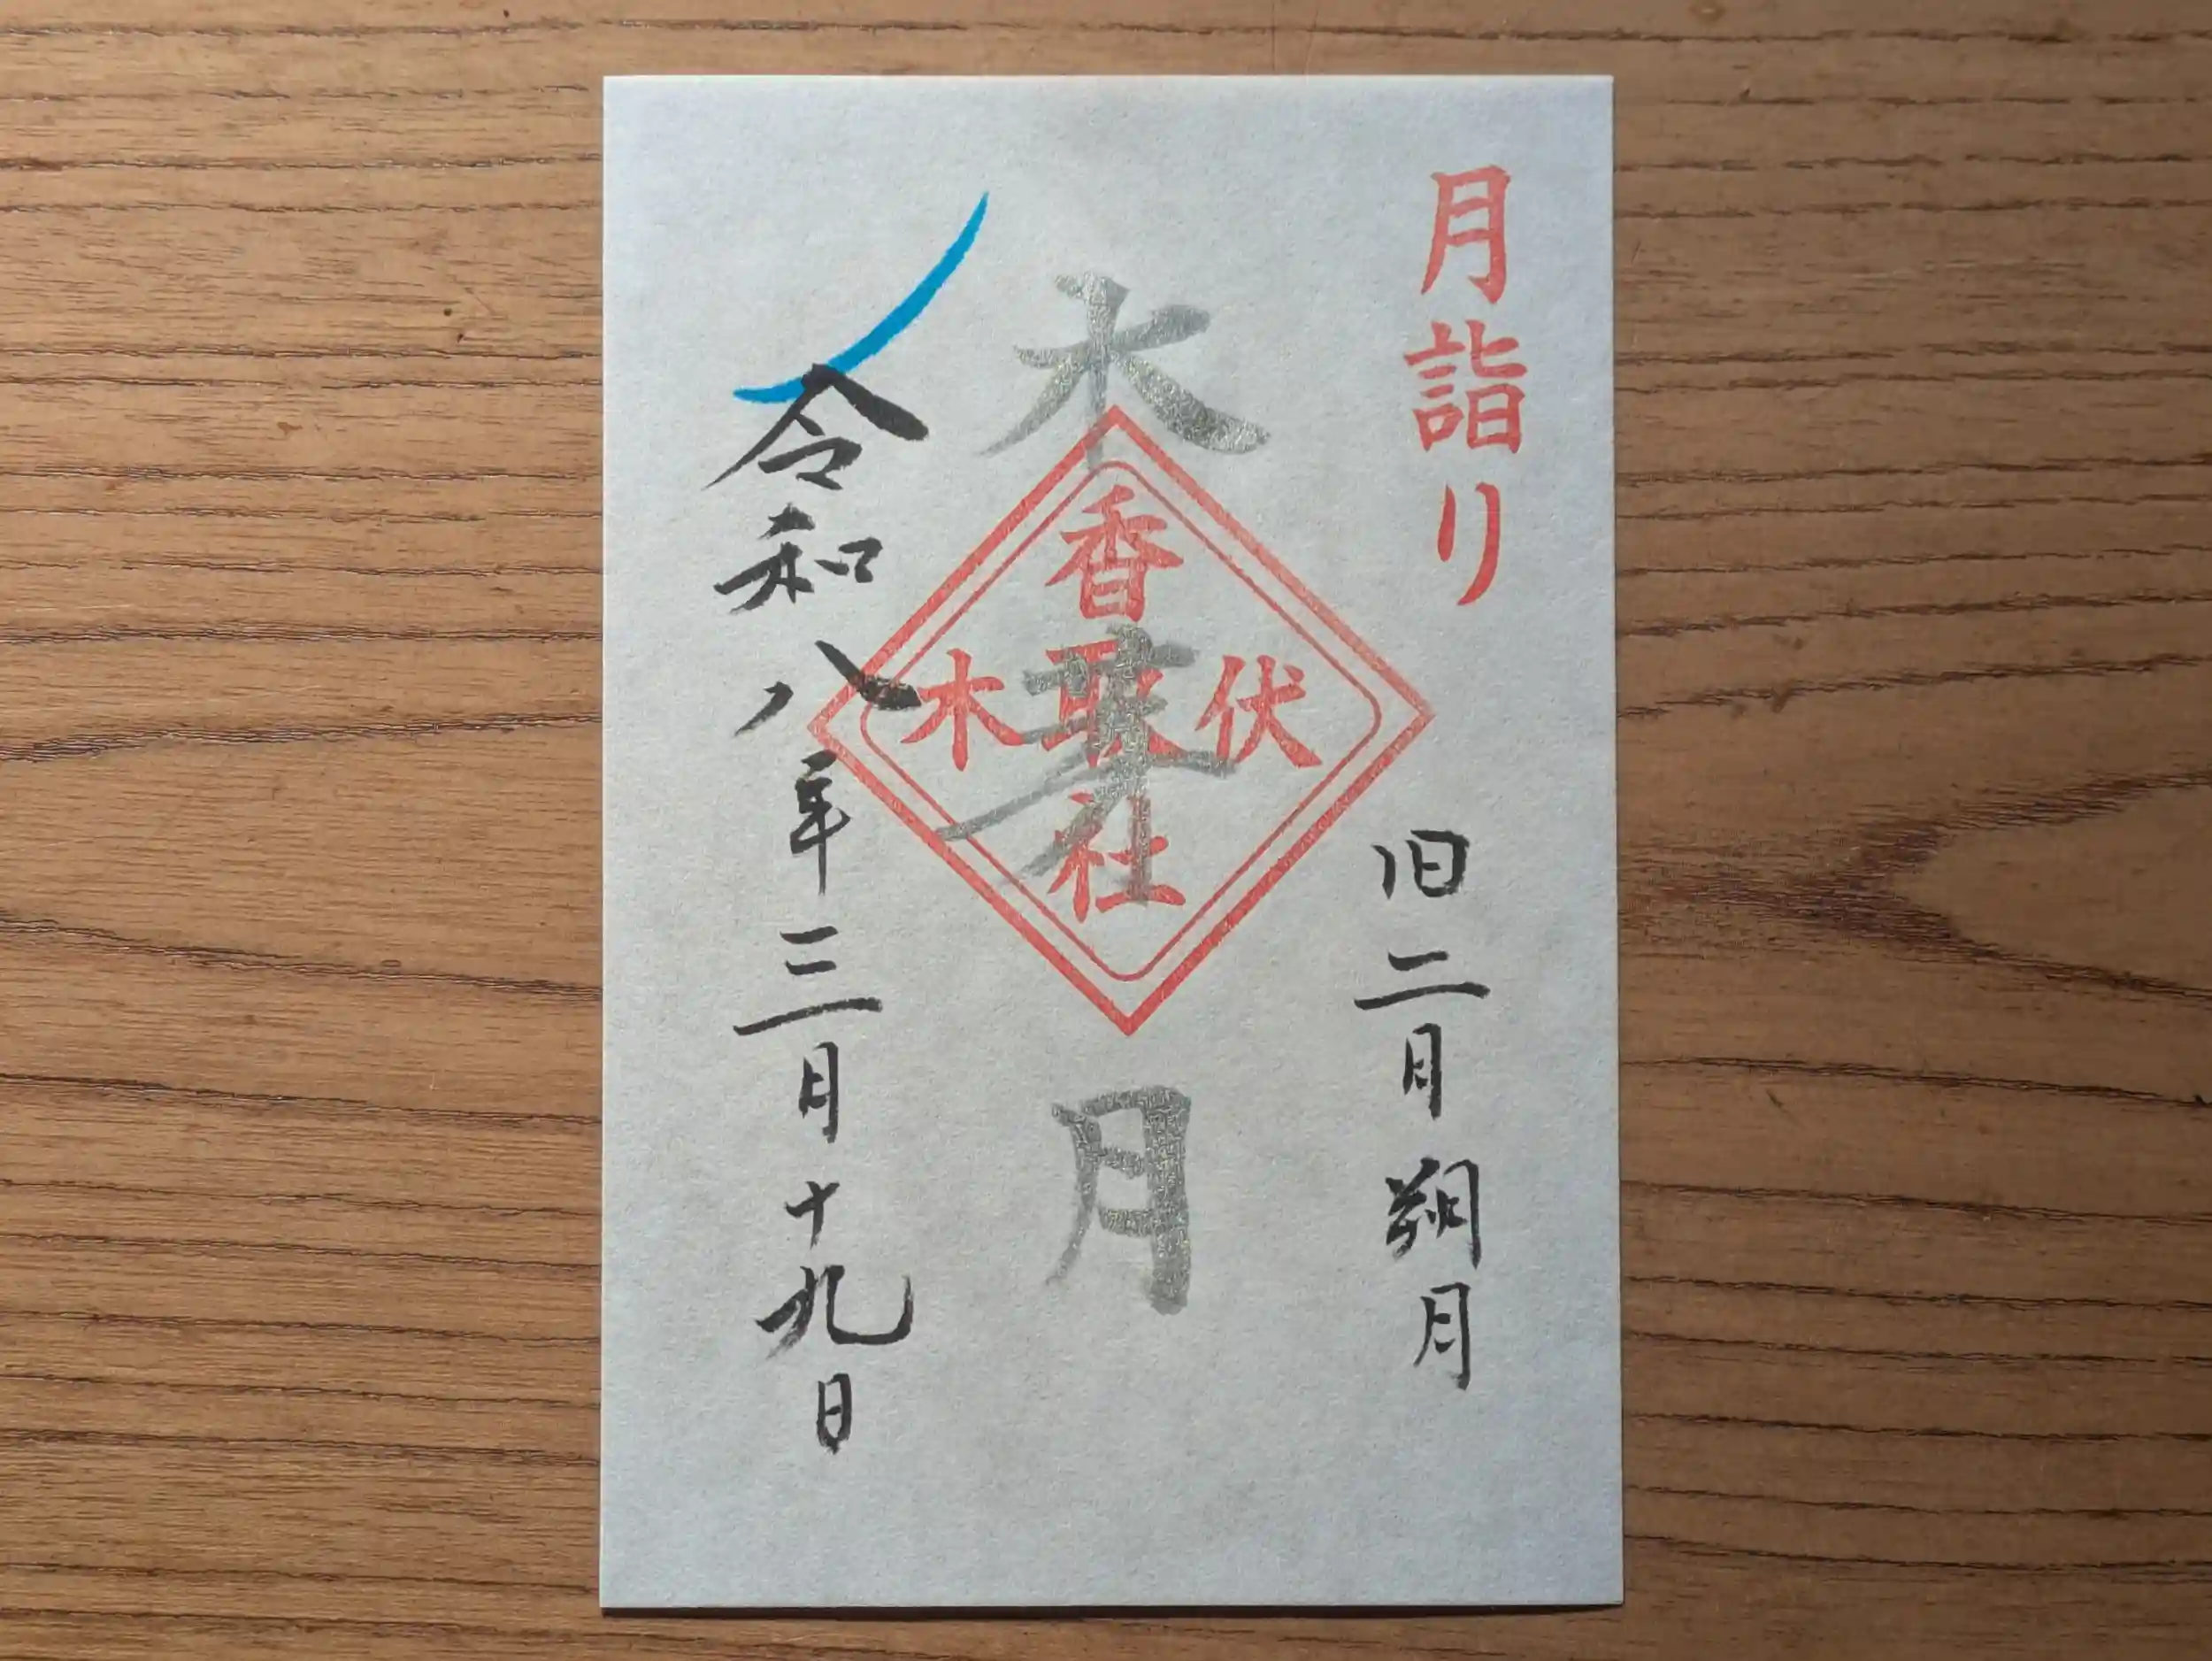 月詣り
旧二月朔月
木芽月
伏木
香取社
令和八年三月十九日